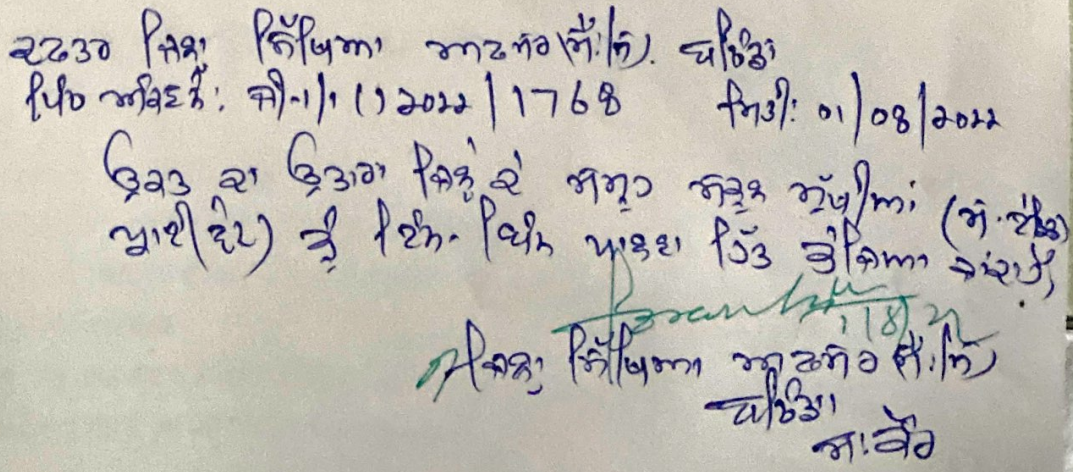 ਦਫਤਰ ਜਿਲ੍ਹਾ ਸਿੱਖਿਆ ਅਫਸਰ (ਸੈ:ਸਿ). ਬਠਿੰਡਾ
2022/1768 ਮਿਤੀ: 01/08/2022
ਉਕਤ ਦਾ ਉਤਾਰਾ ਜਿਲ੍ਹੇ ਦੇ ਸਮੂਹ ਸਕੂਲ ਮੁੱਖੀਆਂ
ਨੂੰ ਇੰਨ- ਬਿੰਨ ਪਾਲਣਾ ਹਿੱਤ ਭੇਜਿਆ ਜਾਂਦਾ ਹੈ
1/8/22
ਜਿਲ੍ਹਾ ਸਿੱਖਿਆ ਅਫਸਰ (ਸੈ:ਸਿ)
ਬਠਿੰਡਾ